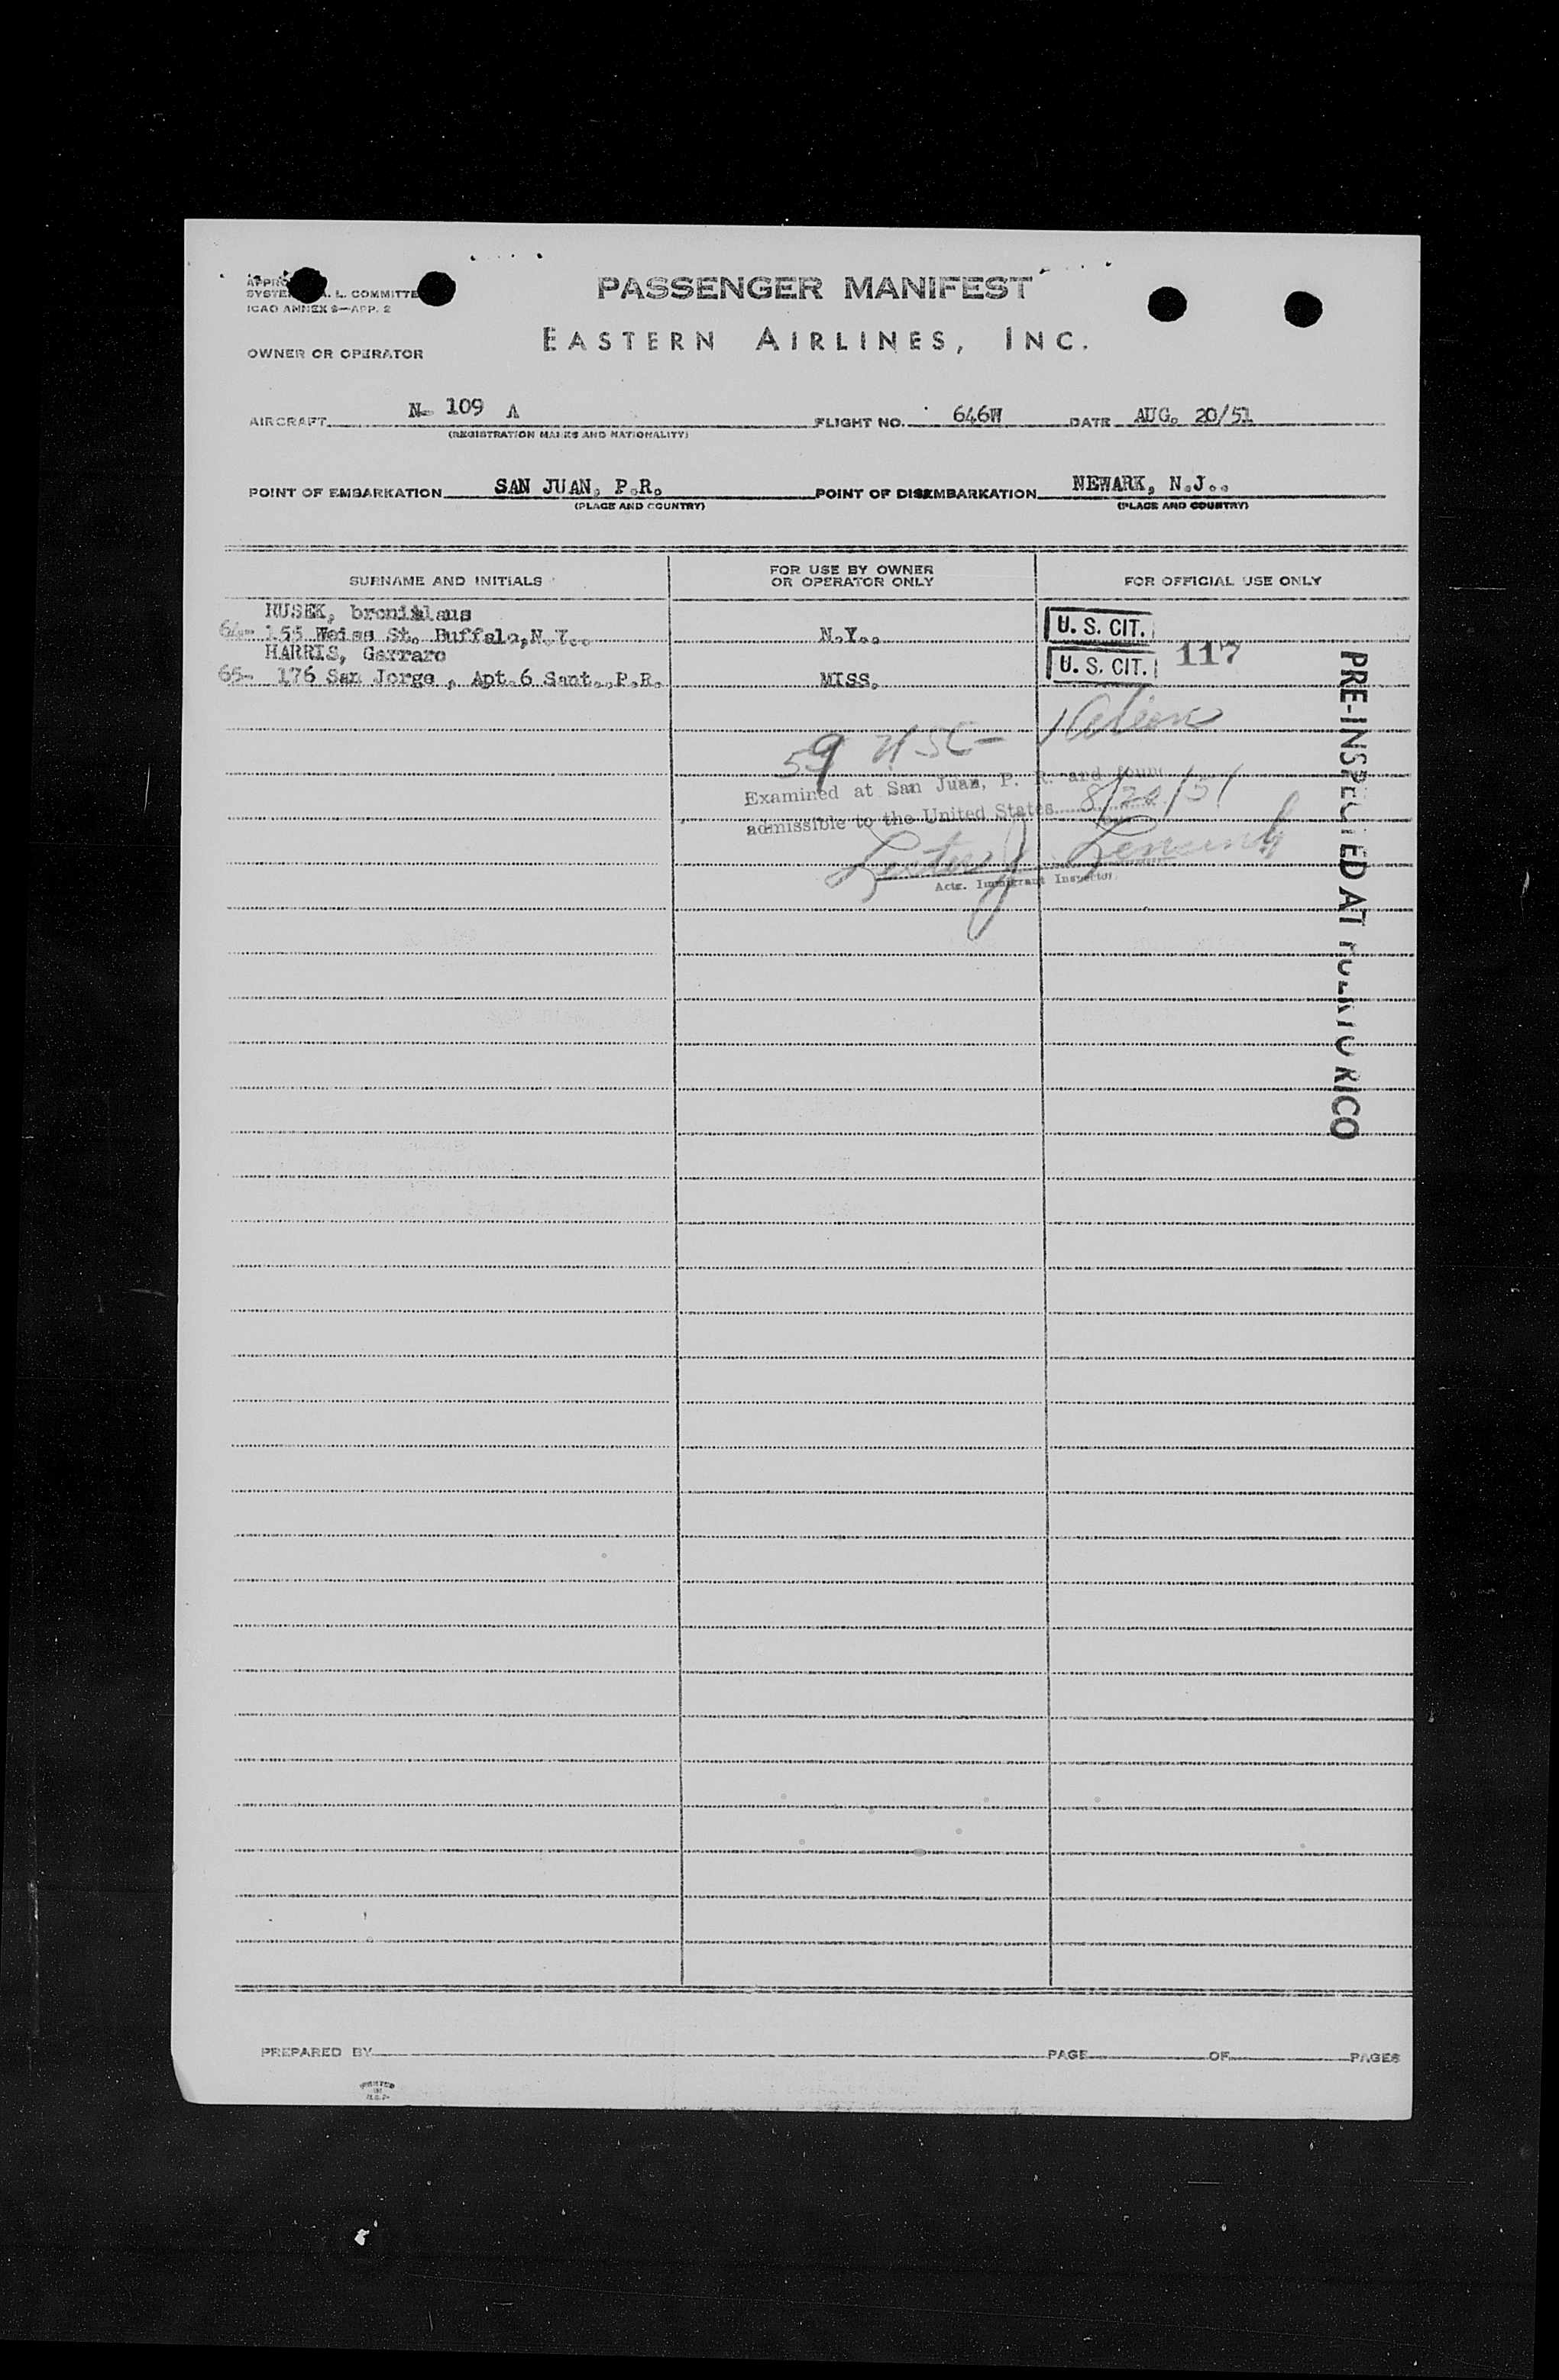 PASSENGER MANIFEST
SYSTEM A. L. COMMITTEE
ICAO ANNEX 9—APP. 2
EASTERN AIRLINES, INC.
OWNER OR OPERATOR
AIRCRAFT N- 109 A FLIGHT NO. 646W DATE AUG. 20/51
(REGISTRATION MARKS AND NATIONALITY)
POINT OF EMBARKATION SAN JUAN, P.R. POINT OF DISEMBARKATION NEWARK, N.J..
(PLACE AND COUNTRY) (PLACE AND COUNTRY)
SURNAME AND INITIALS FOR USE BY OWNER OR OPERATOR ONLY FOR OFFICIAL USE ONLY
RUSEK,
64- 155 Weiss St. Buffalo,N.Y.. N.Y.. U. S. CIT.
HARRIS, Garraro
65- 176 San Jorge , Apt.6 Sant.,P.R. MISS. U. S. CIT. 117
59 USC- 1 Alien
Examined at San Juan, P. R. and found
admissible to the United States 8/20/51
Actg. Immigrant Inspector
PRE-INSPECTED AT PUERTO RICO
PREPARED BY PAGE OF PAGES
PRINTED
IN
U.S.A.